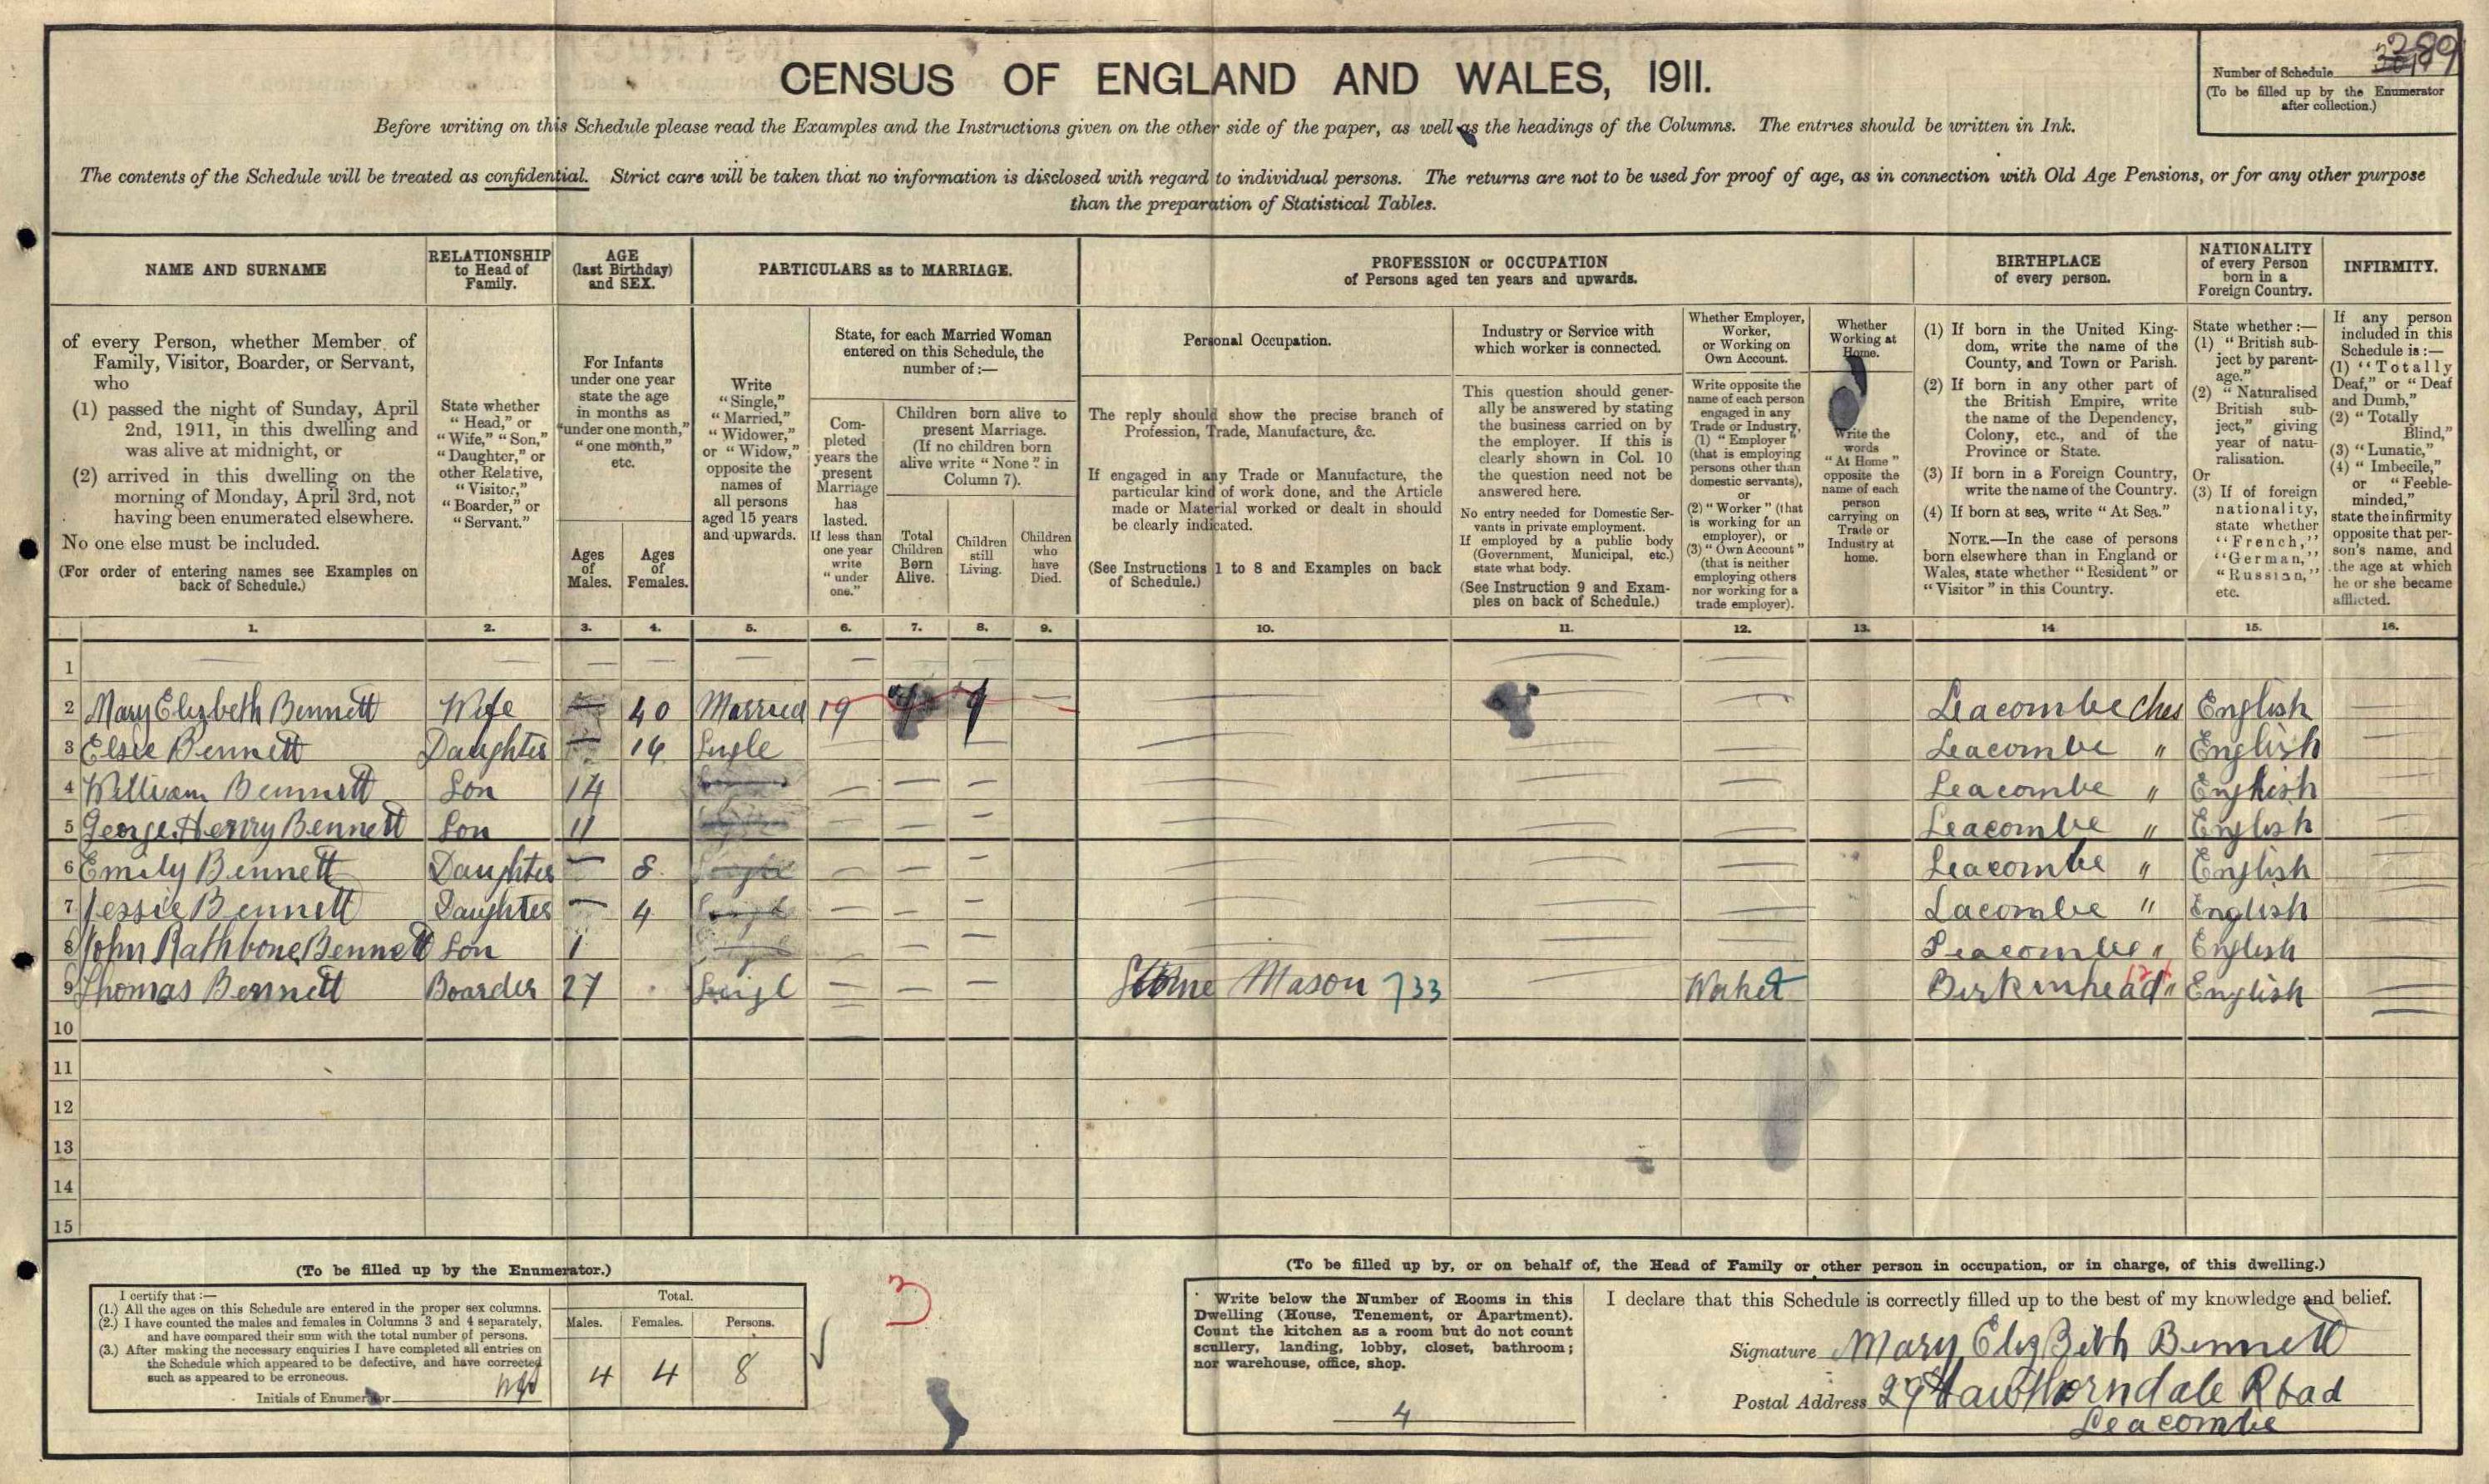 289
CENSUS OF ENGLAND AND WALES, 1911.
Number of Schedule
(To be filled up by the Enumerator after collection.)
Before writing on this Schedule please read the Examples and the Instructions given on the other side of the paper, as well as the headings of the Columns. The entries should be written in Ink.
The contents of the Schedule will be treated as confidential. Strict care will be taken that no information is disclosed with regard to individual persons. The returns are not to be used for proof of age, as in connection with Old Age Pensions, or for any other purpose
than the preparation of Statistical Tables.
NAME AND SURNAME
of every Person, whether Member of
Family, Visitor, Boarder, or Servant,
who
(1) passed the night of Sunday, April
2nd, 1911, in this dwelling and
was alive at midnight, or
(2) arrived in this dwelling on the
morning of Monday, April 3rd, not
having been enumerated elsewhere.
No one else must be included.
(For order of entering names see Examples on
back of Schedule.)
RELATIONSHIP
to Head of
Family.
State whether
"Head," or
"Wife," "Son,"
"Daughter," or
other Relative,
"Visitor,"
"Boarder," or
"Servant."
AGE
(last Birthday)
and SEX.
For Infants
under one year
state the age
in months as
"under one month,"
"one month,"
etc.
Ages
of
Males.
Ages
of
Females.
PARTICULARS as to MARRIAGE.
Write
"Single,"
"Married,"
"Widower,"
or "Widow,"
opposite the
names of
all persons
aged 15 years
and upwards.
State, for each Married Woman
entered on this Schedule, the
number of:—
Com-
pleted
years the
present
Marriage
has
lasted.
If less than
one year
write
"under
one."
Children born alive to
present Marriage.
(If no children born
alive write "None" in
Column 7).
Total
Children
Born
Alive.
Children
still
Living.
Children
who
have
Died.
PROFESSION or OCCUPATION
of Persons aged ten years and upwards.
Personal Occupation.
The reply should show the precise branch of
Profession, Trade, Manufacture, &c.
If engaged in any Trade or Manufacture, the
particular kind of work done, and the Article
made or Material worked or dealt in should
be clearly indicated.
(See Instructions 1 to 8 and Examples on back
of Schedule.)
Industry or Service with
which worker is connected.
This question should gener-
ally be answered by stating
the business carried on by
the employer. If this is
clearly shown in Col. 10
the question need not be
answered here.
No entry needed for Domestic Ser-
vants in private employment.
If employed by a public body
(Government, Municipal, etc.)
state what body.
(See Instruction 9 and Exam-
ples on back of Schedule.)
Whether Employer,
Worker,
or Working on
Own Account.
Write opposite the
name of each person
engaged in any
Trade or Industry,
(1) "Employer"
(that is employing
persons other than
domestic servants),
or
(2) "Worker" (that
is working for an
employer), or
(3) "Own Account"
(that is neither
employing others
nor working for a
trade employer).
Whether
Working at
Home.
Write the
words
"At Home"
opposite the
name of each
person
carrying on
Trade or
Industry at
home.
BIRTHPLACE
of every person.
(1) If born in the United King-
dom, write the name of the
County, and Town or Parish.
(2) If born in any other part of
the British Empire, write
the name of the Dependency,
Colony, etc., and of the
Province or State.
(3) If born in a Foreign Country,
write the name of the Country.
(4) If born at sea, write "At Sea."
NOTE.—In the case of persons
born elsewhere than in England or
Wales, state whether "Resident" or
"Visitor" in this Country.
NATIONALITY
of every Person
born in a
Foreign Country.
State whether:—
(1) "British sub-
ject by parent-
age."
(2) "Naturalised
British sub-
ject," giving
year of natu-
ralisation.
Or
(3) If of foreign
nationality,
state whether
"French,"
"German,"
"Russian,"
etc.
INFIRMITY.
If any person
included in this
Schedule is:—
(1) "Totally
Deaf," or "Deaf
and Dumb,"
(2) "Totally
Blind,"
(3) "Lunatic,"
(4) "Imbecile,"
or "Feeble-
minded,"
state the infirmity
opposite that per-
son's name, and
the age at which
he or she became
afflicted.
1. 2. 3. 4. 5. 6. 7. 8. 9. 10. 11. 12. 13. 14 15. 16.
1
2 Mary Elizbeth Bennett Wife 40 Married 19 7 7 Leacombe Ches English
3 Elsie Bennett Daughter 14 Single Leacombe " English
4 William Bennett Son 14 Leacombe " English
5 George Henry Bennett Son 11 Leacombe " English
6 Emily Bennett Daughter 8 Leacombe " English
7 Jessie Bennett Daughter 4 Lacombe " English
8 John Rathbone Bennett Son 1 Leacombe " English
9 Thomas Bennett Boarder 27 Singl Stone Mason 733 Worker Birkenhead " English
10
11
12
13
14
15
(To be filled up by the Enumerator.)
I certify that:—
(1.) All the ages on this Schedule are entered in the proper sex columns.
(2.) I have counted the males and females in Columns 3 and 4 separately,
and have compared their sum with the total number of persons.
(3.) After making the necessary enquiries I have completed all entries on
the Schedule which appeared to be defective, and have corrected
such as appeared to be erroneous.
Initials of Enumerator
Total.
Males. Females. Persons.
4 4 8
3
(To be filled up by, or on behalf of, the Head of Family or other person in occupation, or in charge, of this dwelling.)
Write below the Number of Rooms in this
Dwelling (House, Tenement, or Apartment).
Count the kitchen as a room but do not count
scullery, landing, lobby, closet, bathroom;
nor warehouse, office, shop.
4
I declare that this Schedule is correctly filled up to the best of my knowledge and belief.
Signature Mary Elizbeth Bennett
Postal Address 29 Hawthorndale Road
Leacombe